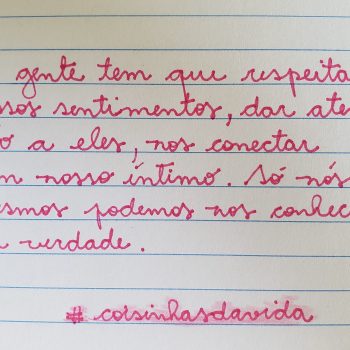 gente tem que respeita
ssos sentimentos, dar ate
o a eles, nos conectar
m nosso íntimo. Só nós
esmos podemos nos conhec
a verdade.
# coisinhasdavida